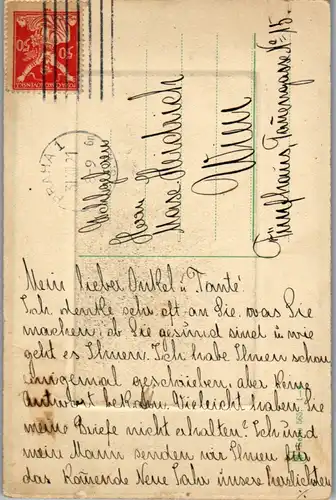 50 50
PRAHA 1
Wohlgeboren
Herr
Max Heidrich
Wien
Fünfhaus, Tannengasse № 15.
Mein lieber Onkel u Tante
Ich denke sehr oft an Sie, was Sie
machen, ob Sie gesund sind u wie
geht es Ihnen. Ich habe Ihnen schon
einigemal geschrieben, aber keine
Antwort bekomen. Vieleicht haben Sie
meine Briefe nicht erhalten? Ich und
mein Mann senden wir Ihnen für
das komende Neue Jahr unsere herzlichten